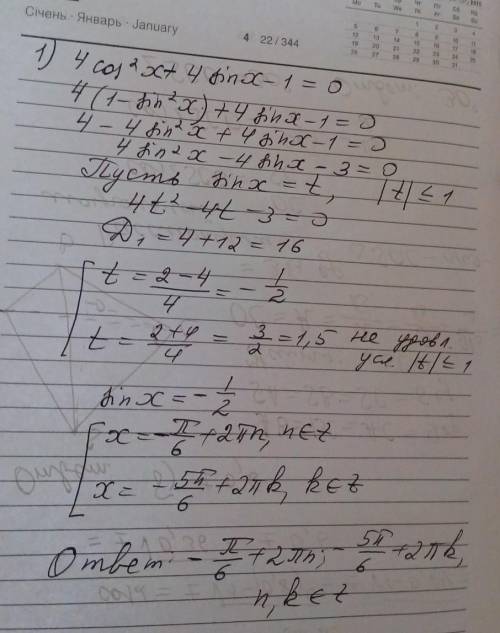 Січень · Январь · January
4 22/344
1) 4 cos²x + 4 sinx - 1 = 0
4(1 - sin²x) + 4 sinx - 1 = 0
4 - 4 sin²x + 4 sinx - 1 = 0
4 sin²x - 4 sinx - 3 = 0
Пусть sinx = t, |t| ≤ 1
4t² - 4t - 3 = 0
D₁ = 4 + 12 = 16
[ t = (2-4)/4 = -1/2
t = (2+4)/4 = 3/2 = 1,5 не удовл.
усл |t| ≤ 1
sinx = -1/2
[ x = -π/6 + 2πn, n∈z
x = -5π/6 + 2πk, k∈z
Ответ: -π/6 + 2πn; -5π/6 + 2πk,
n, k∈z